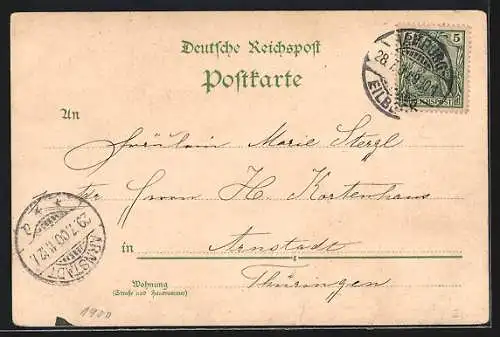 Deutsche Reichspost
Postkarte
5
An
Fräulein Marie Stergl
Herrn H. Kortenhaus
in Arnstadt
Thüringen
Wohnung
(Straße und Hausnummer)
ARNSTADT
29.7.00
1900